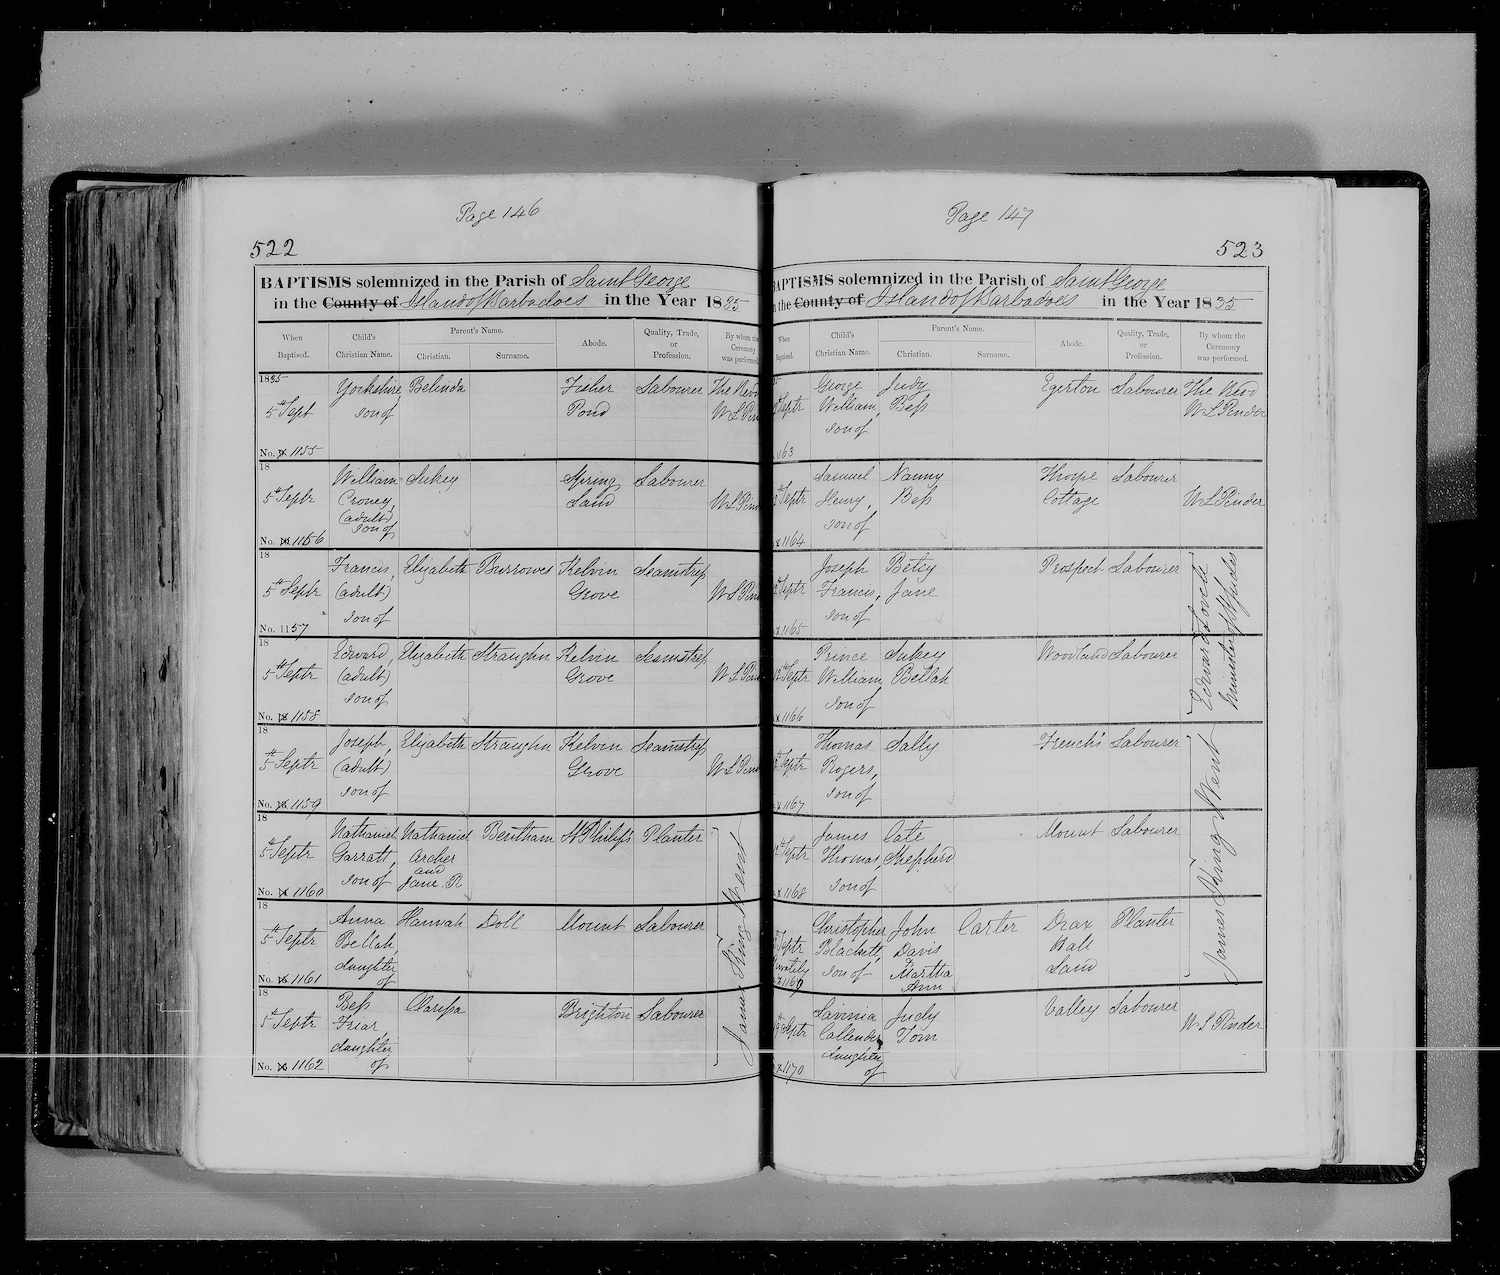 Page 146
522
BAPTISMS solemnized in the Parish of Saint George
in the County of Island of Barbadoes in the Year 1835
When Baptised.
Child's Christian Name.
Parent's Name.
Christian.
Surname.
Abode.
Quality, Trade, or Profession.
By whom the Ceremony was performed
1835
Yorkshire Belinda Fisher Labourer The Revd
5th Sept son of Pond W L Pin
No. 1155
18
William Sukey Spring Labourer
5th Septr Croney, Land W L Pind
(adult)
son of
No. 1156
18
Francis, Elizabeth Burrowes Kelvin Seamstress
5th Septr (adult) Grove W L Pin
son of
No. 1157
18
Edward, Elizabeth Straughn Kelvin Seamstress
5th Septr (adult) Grove W L Pin
son of
No. 1158
18
Joseph Elizabeth Straughn Kelvin Seamstress
5th Septr (adult) Grove W L Pin
son of
No. 1159
18
Nathaniel Nathaniel Bentham St Philip's Planter
5th Septr Garratt, Archer
and
son of Jane R
No. 1160
18
Anna Hannah Doll Mount Labourer
5th Septr Bellah,
daughter
of
No. 1161
18
Bess Clarissa Brighton Labourer
5th Septr Friar,
daughter
No. 1162 of
James King Went
Page 147
523
APTISMS solemnized in the Parish of Saint George
n the County of Island of Barbadoes in the Year 1835
When
Baptised.
Child's Christian Name.
Parent's Name.
Christian.
Surname.
Abode.
Quality, Trade, or Profession.
By whom the Ceremony was performed.
George Judy Egerton Labourer The Revd
Septr William, Bess W L Pinder
son of
63
Samuel Nanny Thorpe Labourer
Septr Henry, Bess Cottage W L Pinder
son of
1164
Joseph Betsy Prospect Labourer
Septr Francis, Jane
son of
1165
Prince Sukey Woodland Labourer
Septr William, Bellah
son of
1166
Edward Lovell
Minister of St Judes
Thomas Sally French's Labourer
Septr Rogers,
son of
1167
James Cate Mount Labourer
Septr Thomas, Shepherd
son of
1168
Christopher John Carter Drax Planter
Septr Blackett, Davis Hall
son of Martha Land
1169 Ann
James King Went
Lavinia Judy Valley Labourer
Septr Callender Tom W L Pinder
daughter
1170 of